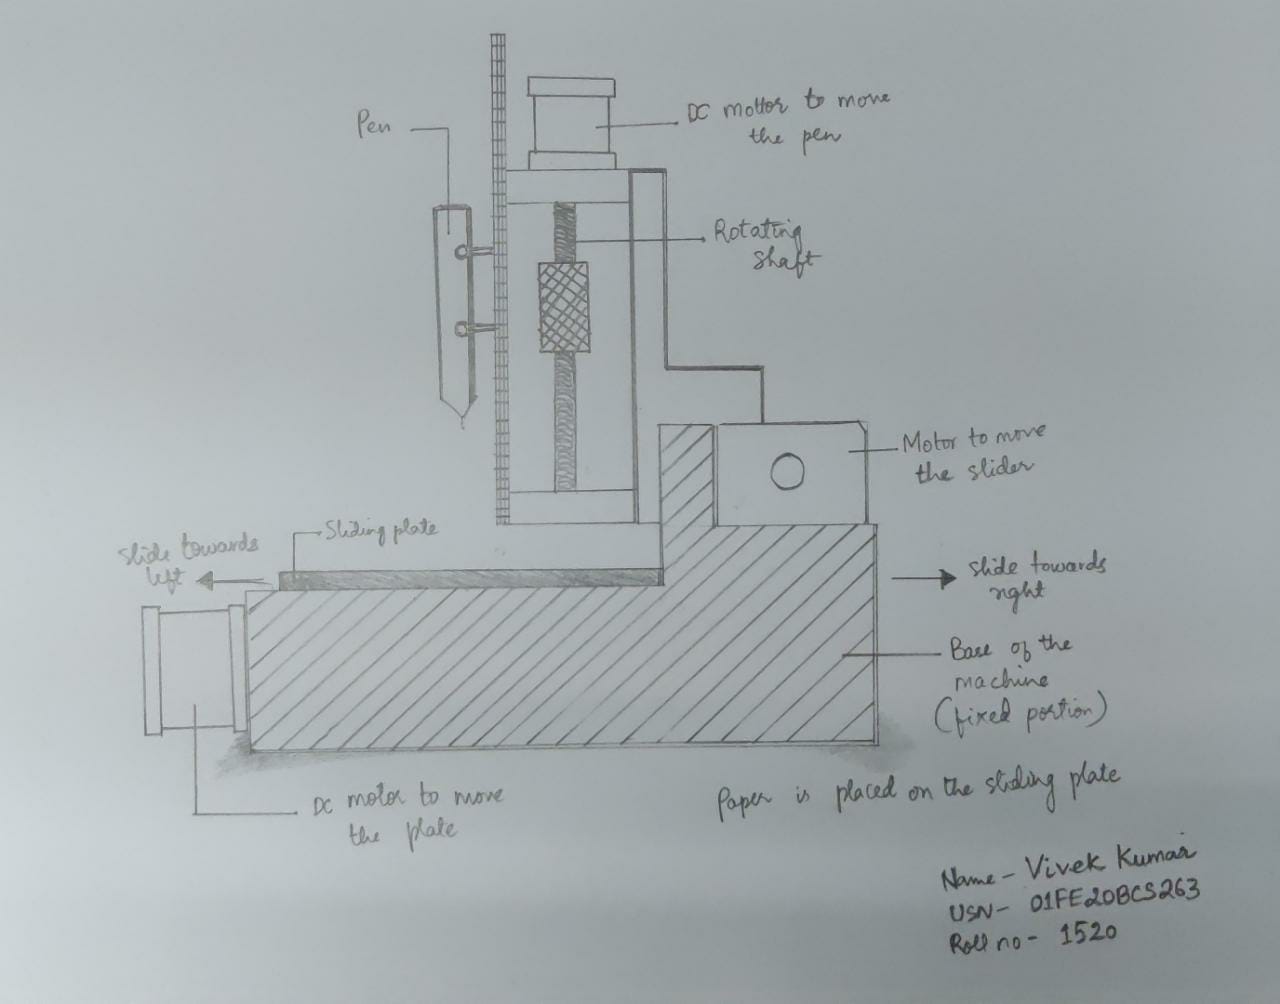 DC mottor to move
the pen
Pen
Rotating
shaft
Motor to move
the slider
Sliding plate
slide towards
left
slide towards
right
Base of the
machine
(fixed portion)
DC motor to move
the plate
Paper is placed on the sliding plate
Name - Vivek Kumar
USN - 01FE20BCS263
Roll no - 1520